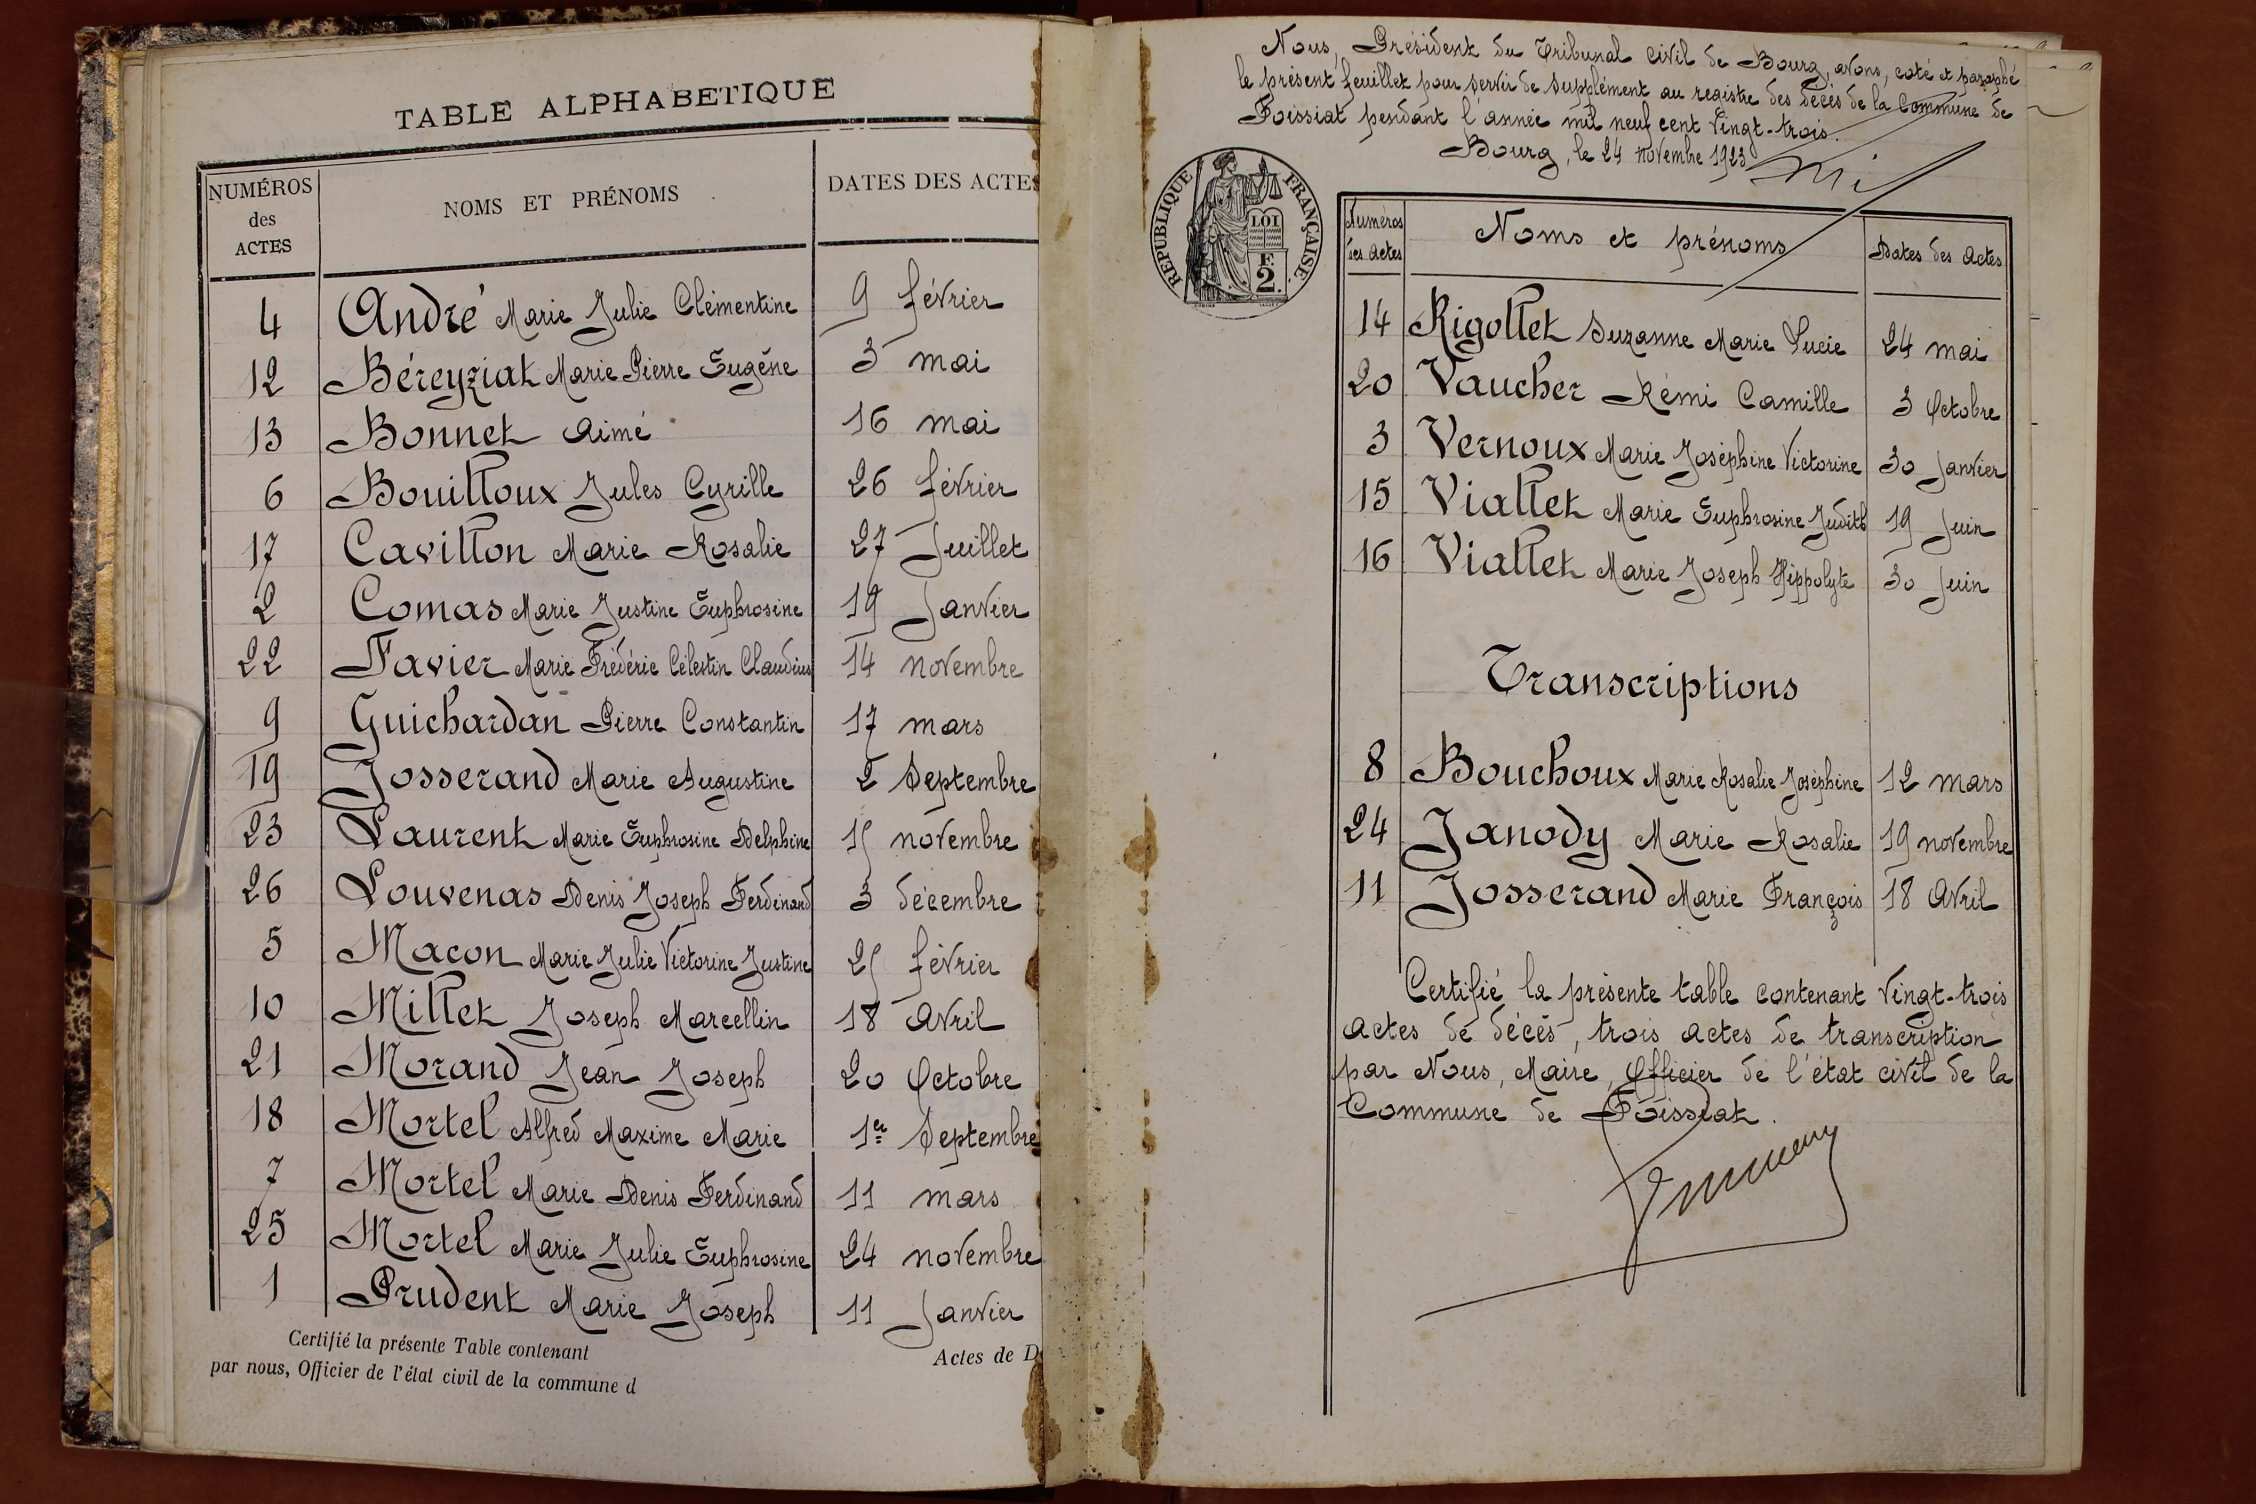 TABLE ALPHABETIQUE
NUMÉROS des ACTES NOMS ET PRÉNOMS DATES DES ACTES
4 André Marie Julie Clémentine 9 février
12 Béreyziat Marie Pierre Eugène 3 mai
13 Bonnet Aimé 16 mai
6 Bouilloux Jules Cyrille 26 février
17 Cavillon Marie Rosalie 27 Juillet
2 Comas Marie Justine Euphrosine 19 Janvier
22 Favier Marie Frédéric Célestin Claudius 14 novembre
9 Guichardan Pierre Constantin 17 mars
19 Josserand Marie Augustine 2 Septembre
23 Laurent Marie Euphrosine Delphine 15 novembre
26 Louvenas Denis Joseph Ferdinand 3 décembre
5 Macon Marie Julie Victorine Justine 25 février
10 Millet Joseph Marcellin 18 Avril
21 Morand Jean Joseph 20 Octobre
18 Mortel Alfred Maxime Marie 1er Septembre
7 Mortel Marie Denis Ferdinand 11 mars
25 Mortel Marie Julie Euphrosine 24 novembre
1 Prudent Marie Joseph 11 Janvier
Certifié la présente Table contenant Actes de D
par nous, Officier de l'état civil de la commune d
Nous, Président du Tribunal civil de Bourg, avons, coté et paraphé
le présent feuillet pour servir de supplément au registre des décès de la Commune de
Foissiat pendant l'année mil neuf cent vingt-trois.
Bourg, le 24 novembre 1923
RÉPUBLIQUE FRANÇAISE
LOI
F.
2.
Numéros des actes Noms et prénoms Dates des actes
14 Rigollet Suzanne Marie Lucie 24 mai
20 Vaucher Rémi Camille 3 Octobre
3 Vernoux Marie Joséphine Victorine 30 Janvier
15 Viallet Marie Euphrosine Judith 19 Juin
16 Viallet Marie Joseph Hippolyte 30 Juin
Transcriptions
8 Bouchoux Marie Rosalie Joséphine 12 mars
24 Janody Marie Rosalie 19 novembre
11 Josserand Marie François 18 Avril
Certifié la présente table contenant vingt-trois
actes de décès, trois actes de transcription
par Nous, Maire, Officier de l'état civil de la
Commune de Foissiat.